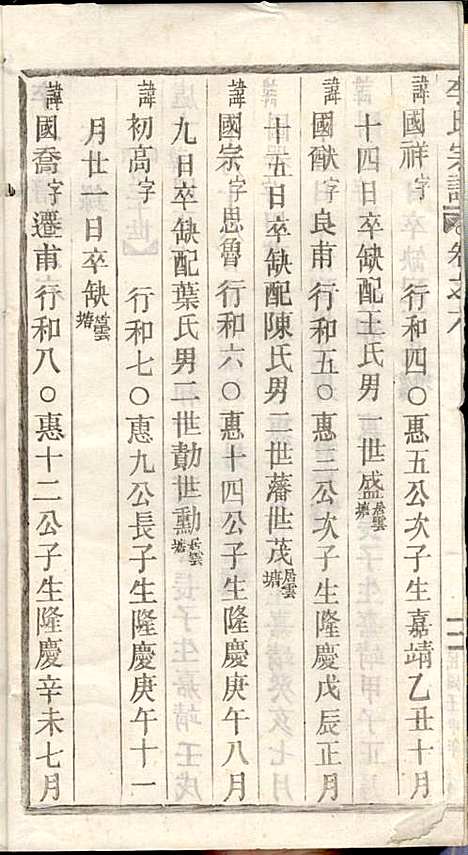 李氏宗譜 卷之八
諱國祥字 行和四○惠五公次子生嘉靖乙丑十月
十四日卒缺配王氏男一世盛居雲塘
諱國猷字良甫行和五○惠三公次子生隆慶戊辰正月
十五日卒缺配陳氏男二世藩世茂居雲塘
諱國宗字思魯行和六○惠十四公子生隆慶庚午八月
九日卒缺配葉氏男二世勣世勳居雲塘
諱初高字 行和七○惠九公長子生隆慶庚午十一
月廿一日卒缺居雲塘
諱國喬字遷甫行和八○惠十二公子生隆慶辛未七月